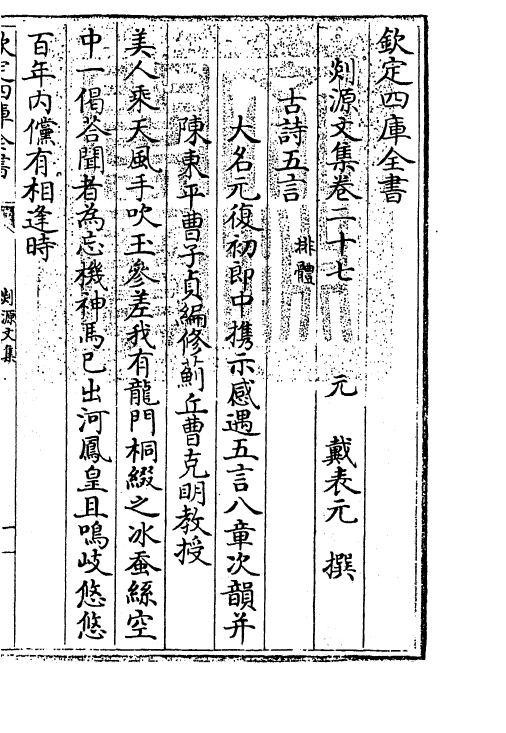 欽定四庫全書
剡源文集卷二十七 元 戴表元 撰
古詩五言 排體
大名元復初郎中携示感遇五言八章次韻并
陳東平曹子貞編修薊丘曹克明教授
美人乘天風手吹玉參差我有龍門桐綴之冰蚕絲空
中一偈荅聞者為忘機神馬已出河鳳皇且鳴岐悠悠
百年内儻有相逢時
欽定四庫全書
剡源文集
一